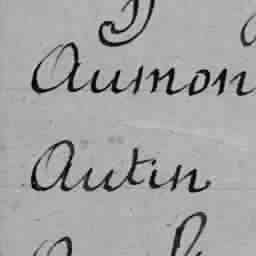 Aumon
Autin